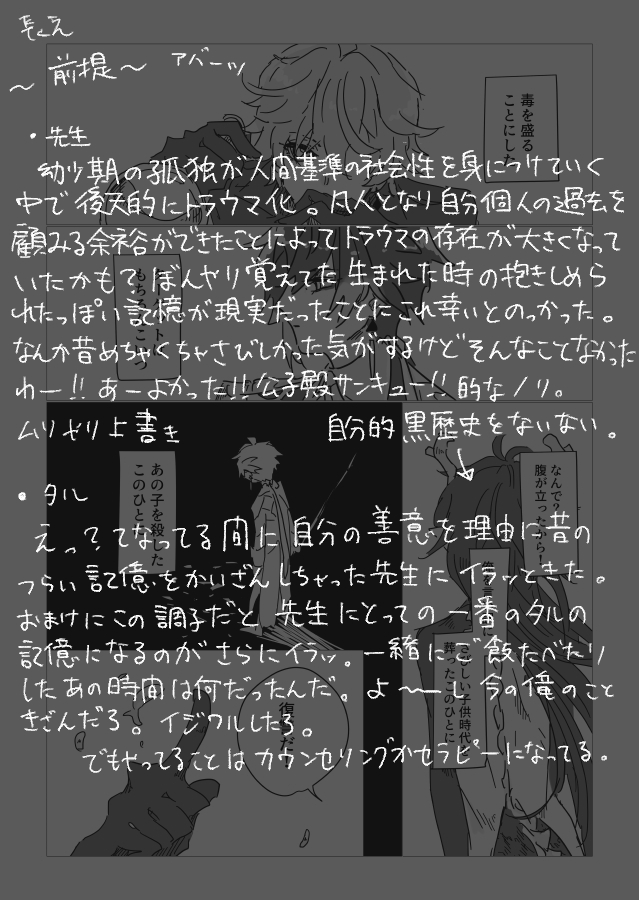 〜前提〜 アバーッ
・先生
幼少期の孤独が人間基準の社会性を身につけていく
中で後天的にトラウマ化。凡人となり自分個人の過去を
顧みる余裕ができたことによってトラウマの存在が大きくなって
いたかも？ぼんやり覚えてた生まれた時の抱きしめら
れたっぽい記憶が現実だったことにこれ幸いとのっかった。
なんか昔めちゃくちゃさびしかった気がするけどそんなことなかった
わー!!あーよかった!!公子殿サンキュー!!的なノリ。
ムリヤリ上書き 自分的黒歴史をないない。
・タル
えっ？てなってる間に自分の善意を理由に昔の
つらい記憶をかいざんしちゃった先生にイラッときた。
おまけにこの調子だと先生にとっての一番のタルの
記憶になるのがさらにイラッ。一緒にご飯たべたり
したあの時間は何だったんだ。よ〜〜し今の俺のこと
きざんだろ。イジワルしたろ。
でもやってることはカウンセリングかセラピーになってる。
毒を盛る
ことにした
あの子を殺した
このひとを
なんで？
腹が立ったから！
さびしい子供時代を
葬ったこのひとに